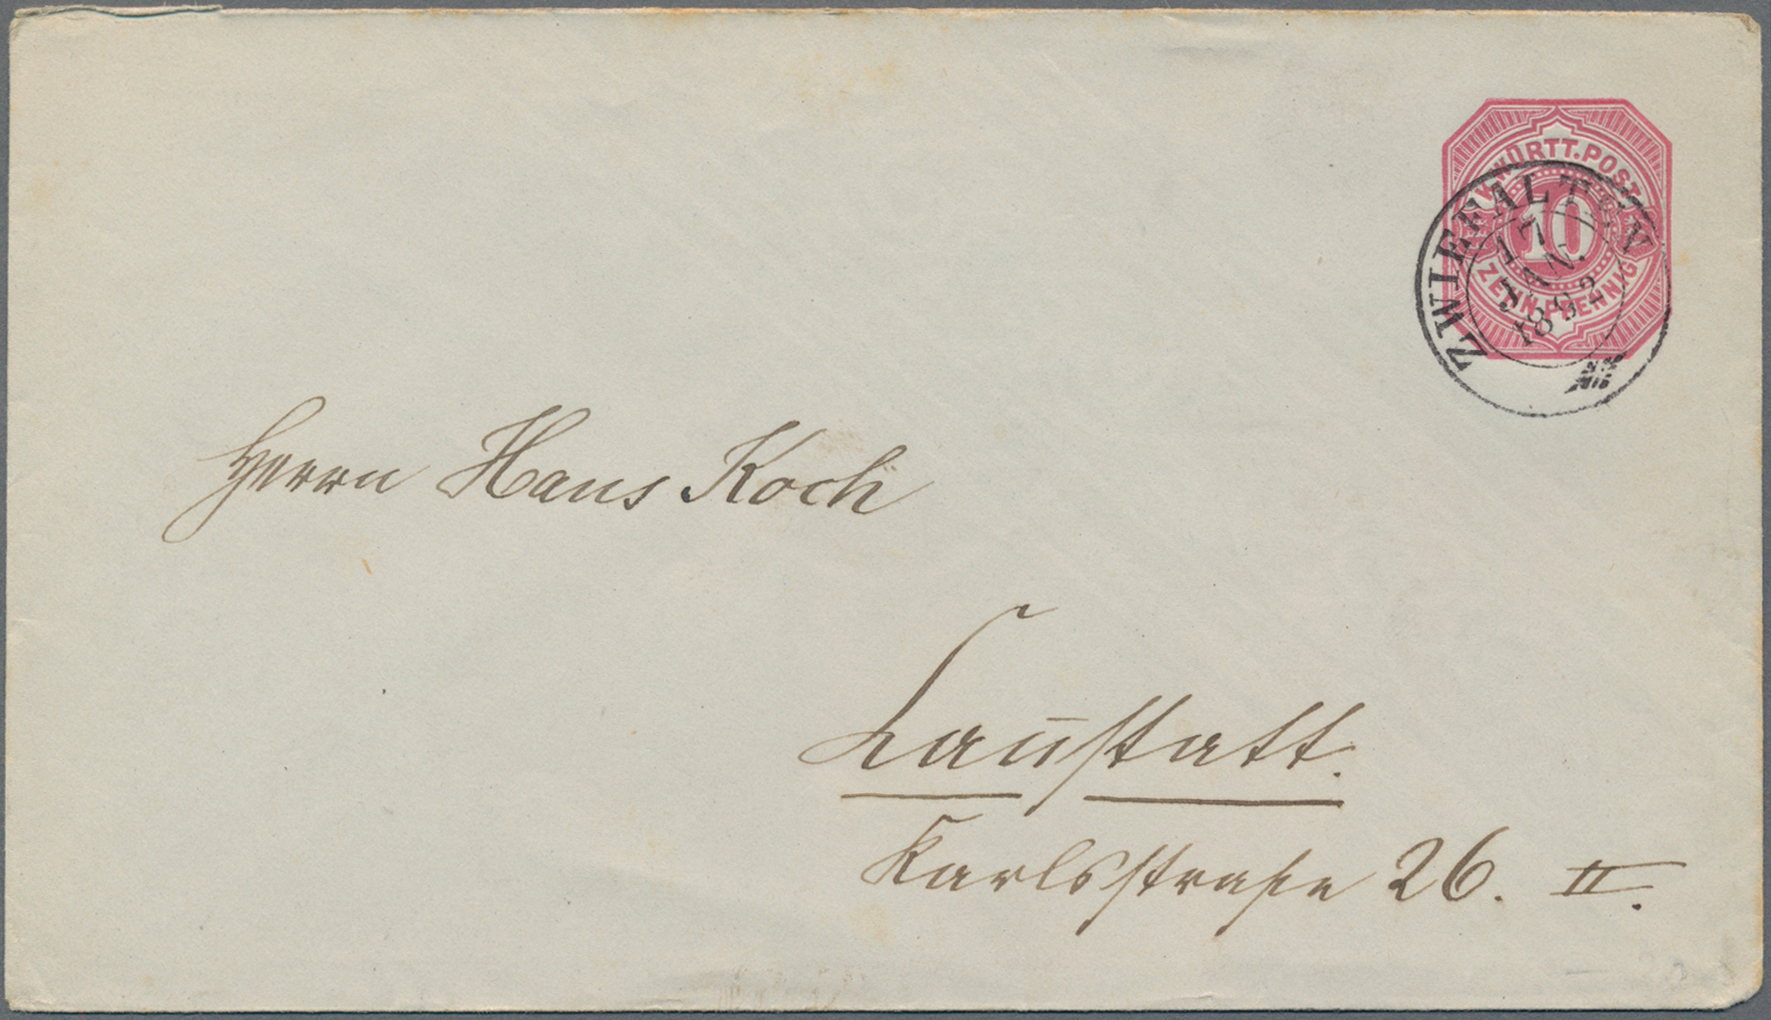 K.WÜRTT.POST
10
ZEHN PFENNIG
ZWIEFALTEN
17
JAN.
1892
Herrn Hans Koch
Can̄statt.
Karlsstraße 26. II.